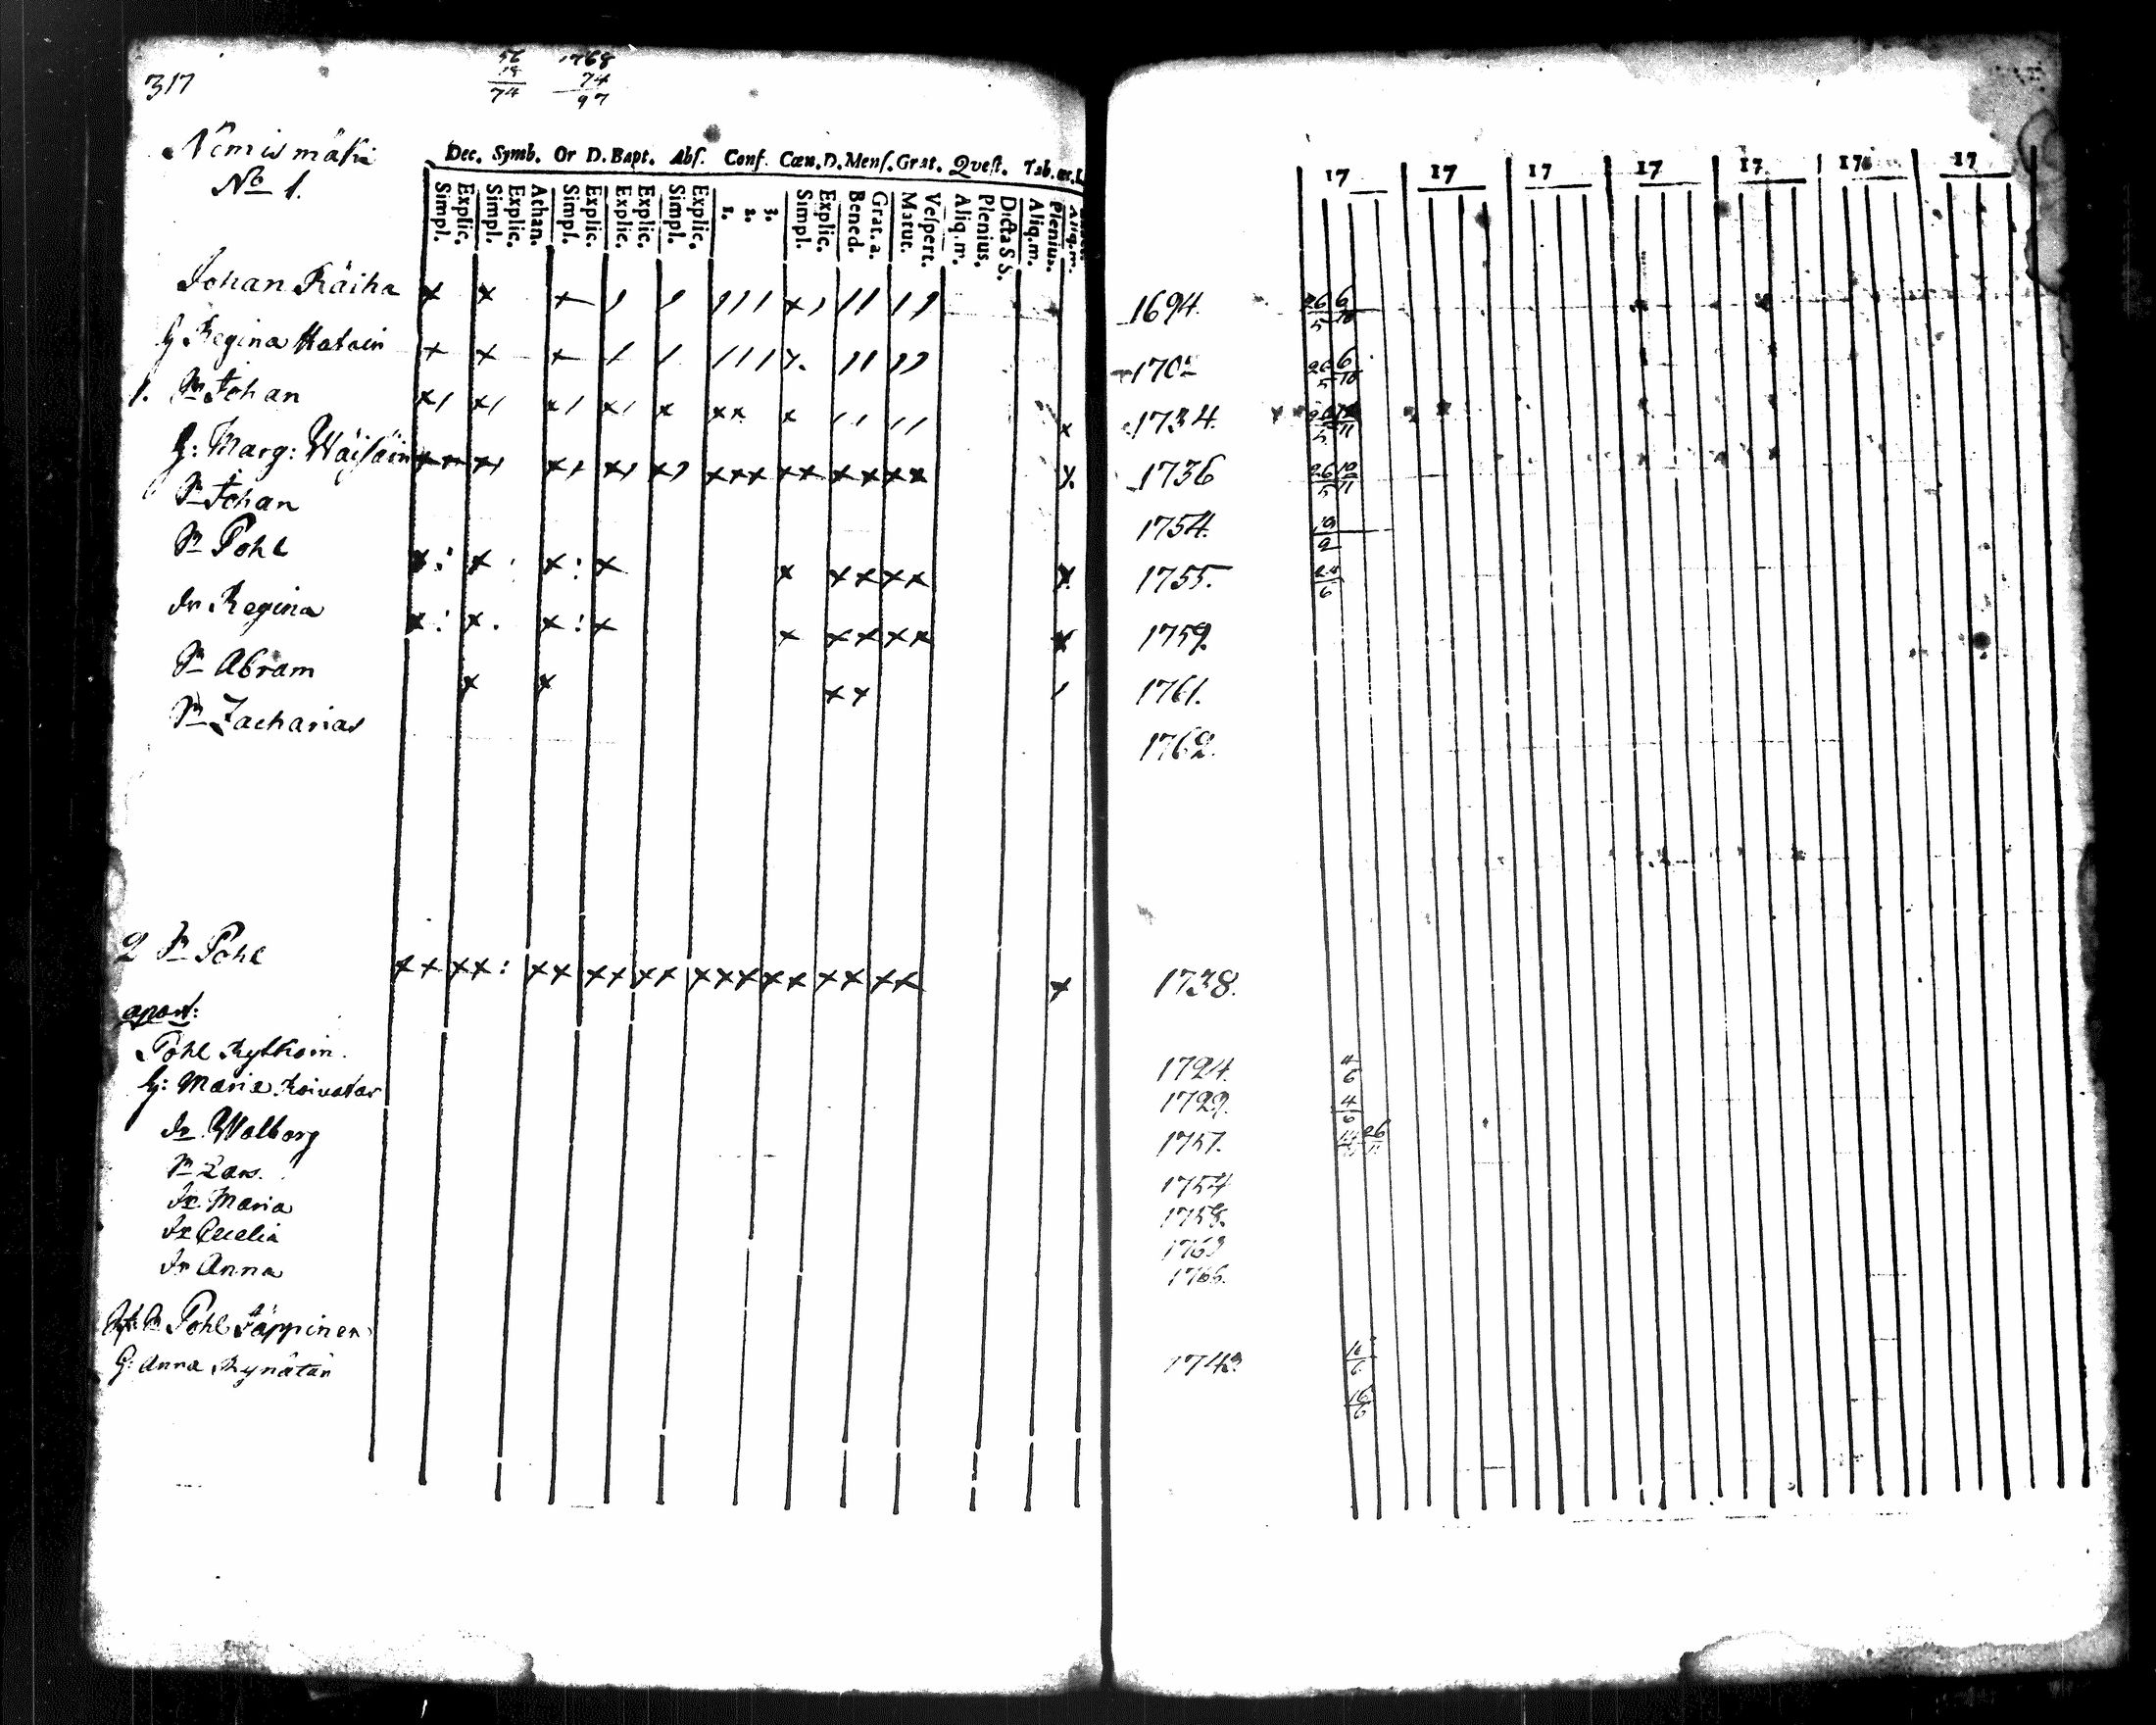 317
56 1768
18 74
74 97
Nemismäki
No 1.
Dec. Symb. Or D. Bapt. Abs. Conf. Cœn. D. Mens. Grat. Quest. Tab. œc.
Simpl. Explic. Simpl. Explic. Athan. Simpl. Explic. Explic. Explic. Simpl. Explic. 1. 2. 3. Simpl. Explic. Bened. Grat. a. Matut. Vespert. Aliq.m. Plenius. Dicta S S. Aliq.m. Plenius. Aliq.m.
17 17 17 17 17 176 17
Johan Räihä 1694. 26/5 6/10
h Regina Hatain 170 26/5 6/10
1. Sn Johan 1734. 26/5 /11
h: Marg: Wäisäin 1736 26/5 10/11
Sn Johan 1754. 19/2
Sn Pohl 1755. 24/6
dr Regina 1759.
Sn Abram 1761.
Sn Zacharias 1762.
2 Sn Pohl 1738.
apart:
Pohl Rytkoin. 1724. 4/6
h: Maria Koivatar 1729. 4/6
dr Walborg 1757. 26/11
Sn Lars. 1754
dr Maria 1758.
dr Cecelia 1763
dr Anna 1766.
Pohl Jäppinen 1743. 16/6
h: Anna Rynätär 16/6